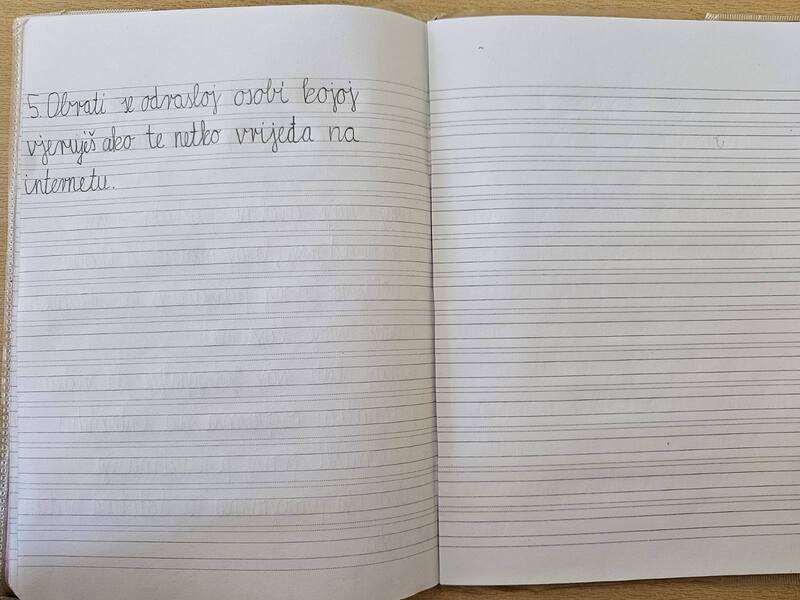 5. Obrati se odrasloj osobi kojoj
vjeruješ ako te netko vrijeđa na
internetu.